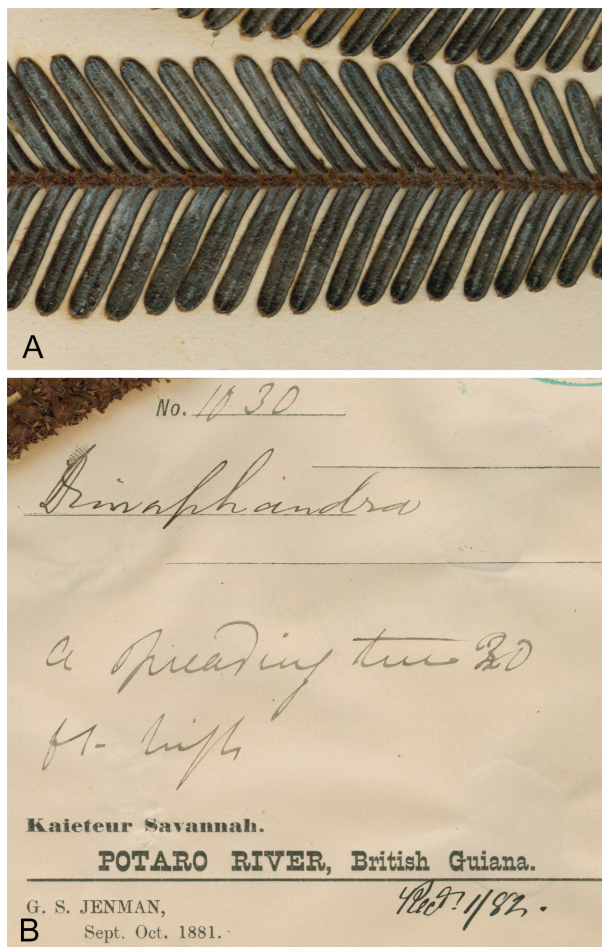 A
No. 1030
Dimaphandra
a spreading tree 30
ft. high
Kaieteur Savannah.
POTARO RIVER, British Guiana.
G. S. JENMAN,
Recd. 1/82.
Sept. Oct. 1881.
B